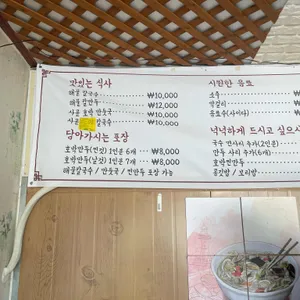 맛있는 식사
해물 칼국수 ₩10,000
해물 칼만두 ₩12,000
사골 호박 만둣국 ₩10,000
사골 칼국수 ₩10,000
담아가시는 포장
호박만두(찐것) 1인분 6개 ₩8,000
호박만두(날것) 1인분 7개 ₩8,000
해물칼국수 / 만둣국 / 찐만두 포장 가능
시원한 음료
소주
막걸리
음료수(사이다)
넉넉하게 드시고 싶으시
국수 면사리 추가(2인분)
만두 사리 추가(6개)
호박찐만두
공깃밥 / 보리밥